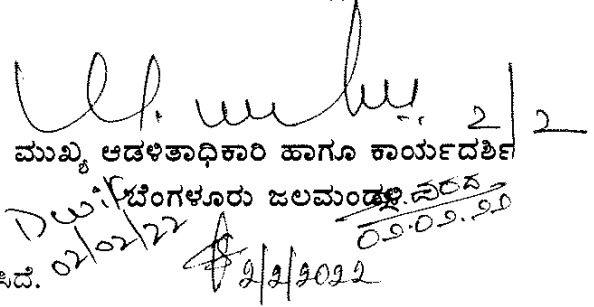 2/2
ಮುಖ್ಯ ಆಡಳಿತಾಧಿಕಾರಿ ಹಾಗೂ ಕಾರ್ಯದರ್ಶಿ
ಬೆಂಗಳೂರು ಜಲಮಂಡಳಿ
02/02/22
೦೨.೦೨.೨೨
ಸಿದೆ.
2/2/2022